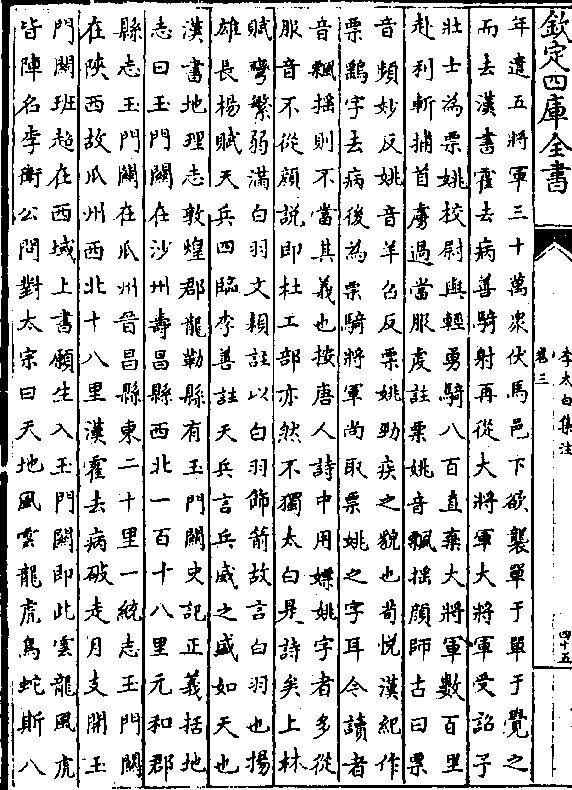 欽定四庫全書
李太白集注
卷三
四十五
年遣五將軍三十萬衆伏馬邑下欲襲單于單于覺之
而去漢書霍去病善騎射再從大將軍大將軍受詔予
壯士為票姚校尉與輕勇騎八百直棄大將軍數百里
赴利斬捕首虜過當服虔註票姚音飄摇顔師古曰票
音頻妙反姚音羊召反票姚勁疾之貌也荀悦漢紀作
票鷂字去病後為票騎將軍尚取票姚之字耳今讀者
音飄摇則不當其義也按唐人詩中用嫖姚字者多從
服音不從顔説即杜工部亦然不獨太白是詩矣上林
賦彎繁弱滿白羽文穎註以白羽飾箭故言白羽也揚
雄長楊賦天兵四臨李善註天兵言兵威之盛如天也
漢書地理志敦煌郡龍勒縣有玉門關史記正義括地
志曰玉門關在沙州壽昌縣西北一百十八里元和郡
縣志玉門關在瓜州晉昌縣東二十里一統志玉門關
在陜西故瓜州西北十八里漢霍去病破走月支開玉
門關班超在西域上書願生入玉門關即此雲龍風虎
皆陣名李衛公問對太宗曰天地風雲龍虎鳥蛇斯八